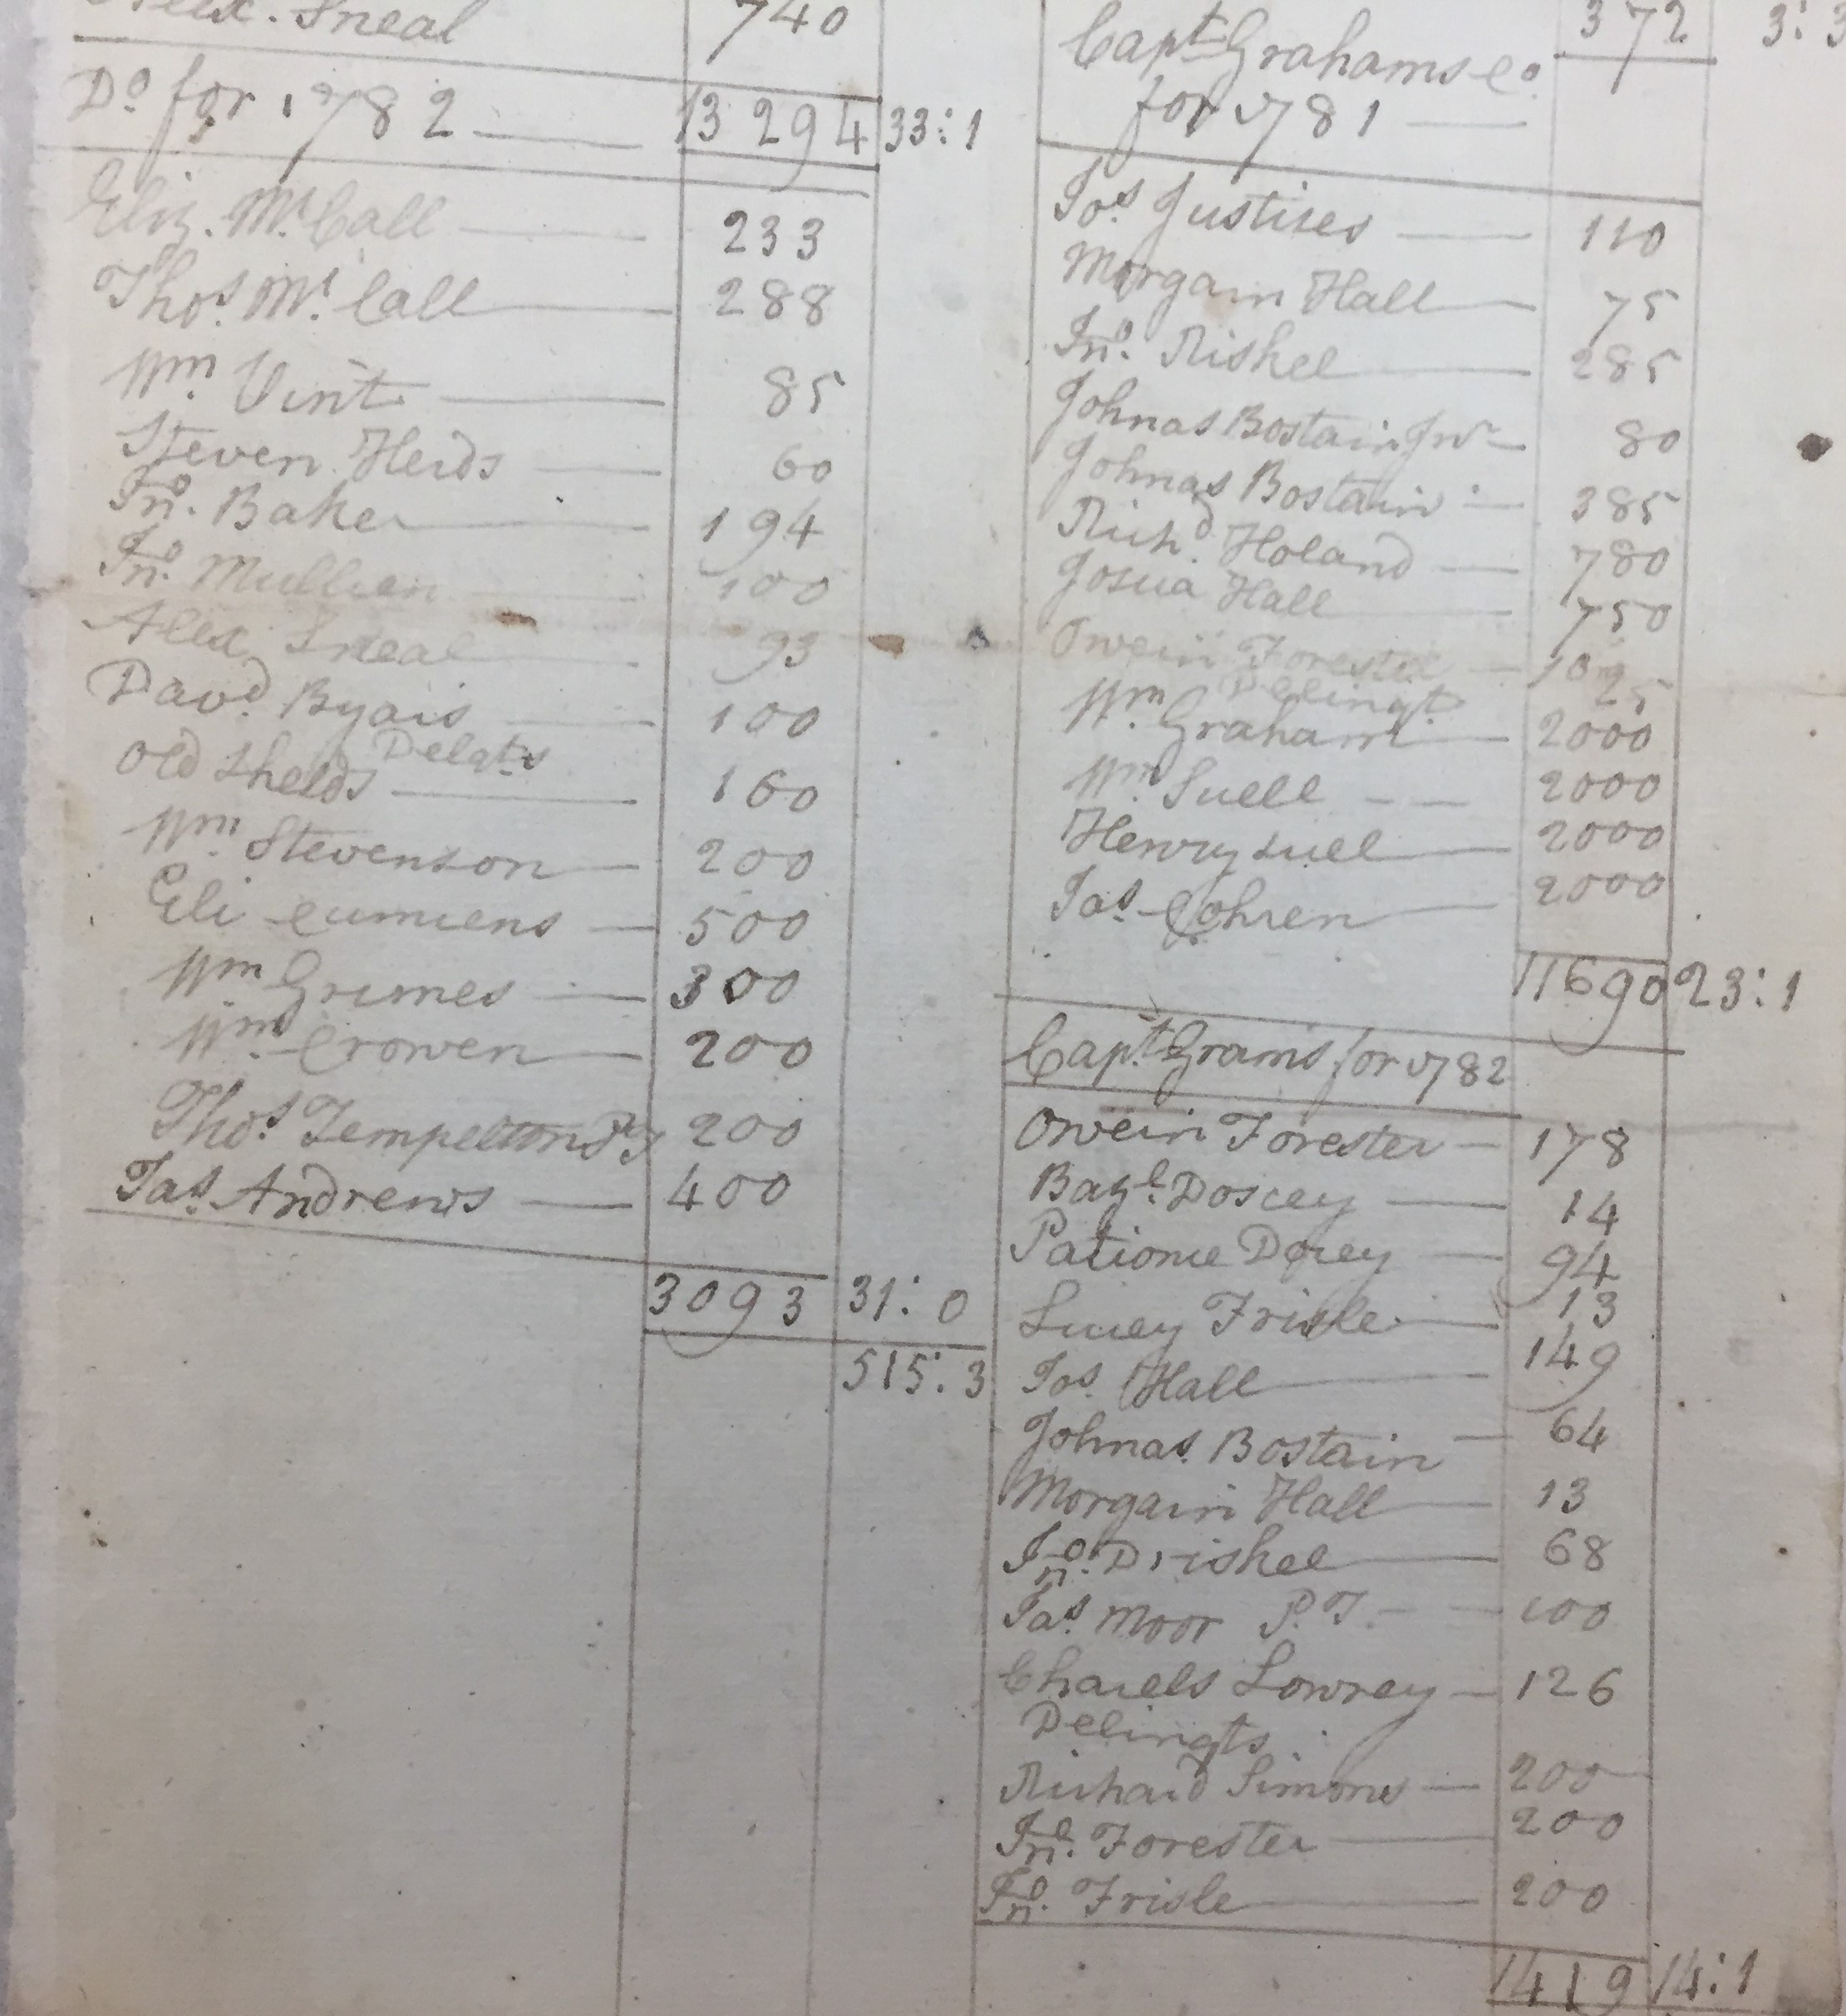 Alex. Sneal 740
Do for 1782 13294 33:1
Eliz. Mc Call 233
Thos. Mc Call 288
Wm Vint 85
Steven Heids 60
Jno. Baker 194
Jno. Mullien 100
Alex Sneal 93
Davd. Byais 100
Delqts
Old Shelds 160
Wm Stevenson 200
Eli Cumiens 500
Wm Grimes 300
Wm Crowen 200
Thos. Tempelton 200
Jas. Andrews 400
3093 31:0
515:3
372 3:3
Capt Grahams Co.
for 1781
Jos Justises 110
Morgain Hall 75
Jno. Rishel 285
Johnas Bostain Jnr 80
Johnas Bostain 385
Richd. Holand 780
Josua Hall 750
Owein Forester
Delingt. 25
Wm Graham 2000
Wm Suell 2000
Henry Suell 2000
Jas. Cohren 2000
11690 23:1
Capt. Grams for 1782
Owein Forester 178
Bazl. Doscey 14
Patione Dorey 94
Lucey Frisle 13
Jos. Hall 149
Johnas Bostain 64
Morgain Hall 13
Jno. Drishel 68
Jas. Moor P.T. 100
Charels Lowrey 126
Delingts
Richard Simons 200
Jno. Forester 200
Jno. Frisle 200
1419 14:1